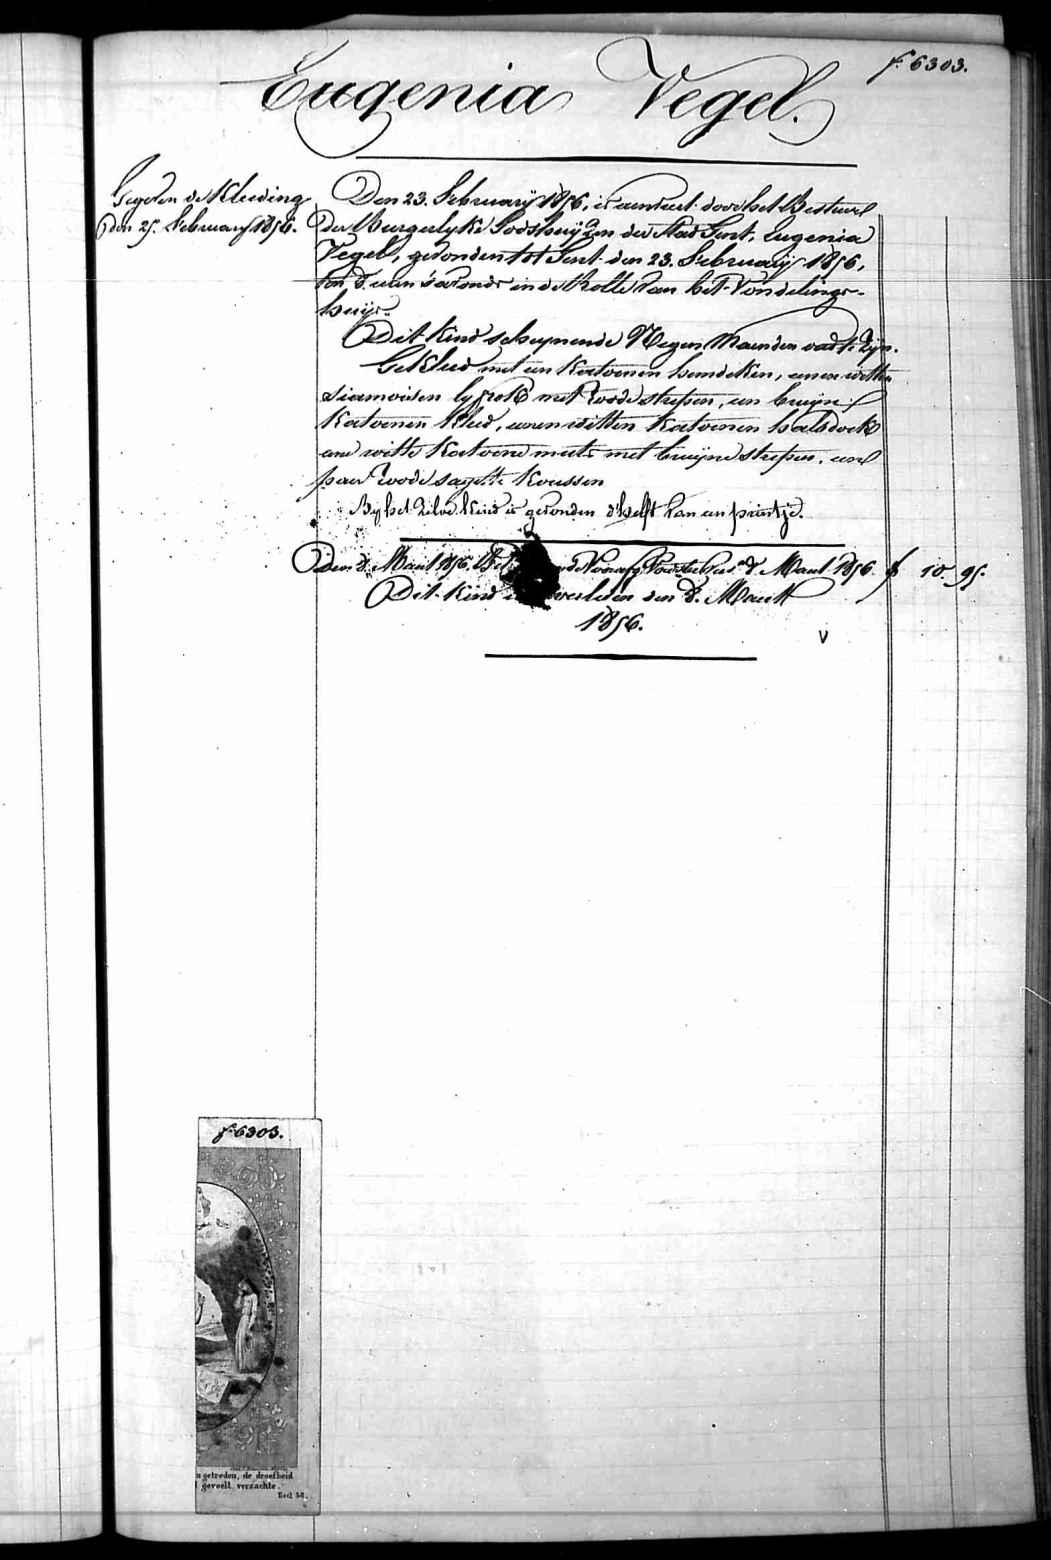 f. 6303.
Eugenia Vegel.
Gegeven de Kleeding
den 25. February 1856.
Den 23. February 1856, is aenveert door het Bestuur
der Burgerlyke Godshuyzen der Stad Gent, Eugenia
Vegel, gevonden tot Gent den 23. February 1856,
ten 8. uren s'avonds in de Rolle van het Vondelings-
huys.
Dit kind schynende Negen Maenden oud te zyn.
Gekleed met een katoenen hemdeken, eenen witten
siamoisen lyfrok met roode strepen, een bruyn
katoenen kleed, eenen witten katoenen halsdoek
eene witte katoene muts met bruyne strepen, een
paer roode sayette koussen
By het zelve kind is gevonden d'helft van een prentje.
Den 8. Maert 1856. 8. Maert 1856. f 10 95.
Dit kind overleden den 8. Maert
1856.
V
f. 6303.
n getreden, de droefheid
l gevoelt, verzachte.
Eccl 38.